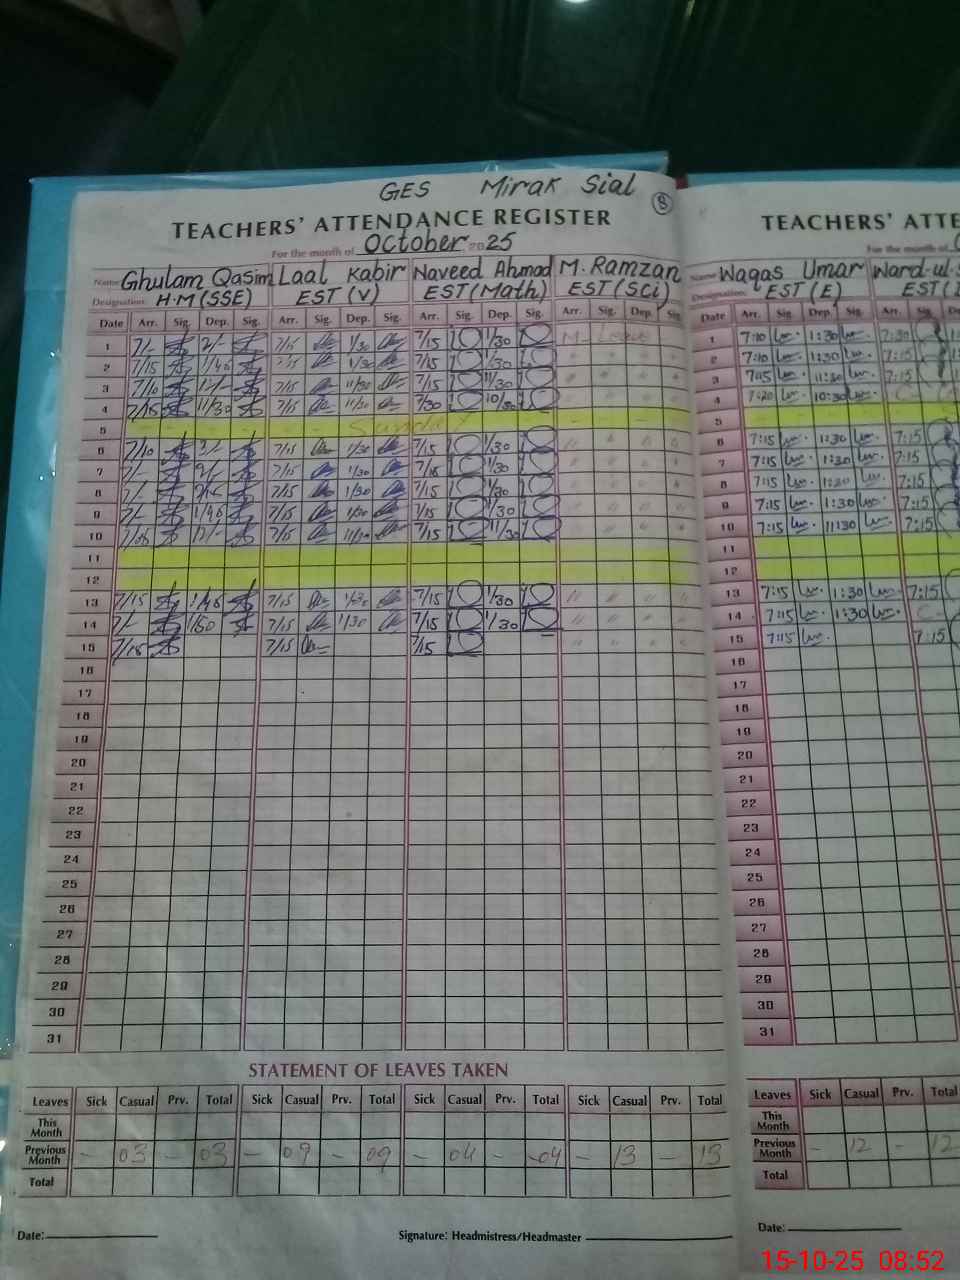 GES Mirak Sial
8
TEACHERS' ATTENDANCE REGISTER
For the month of October 2025
Name Ghulam Qasim Laal Kabir Naveed Ahmad M. Ramzan
Designation: H.M(SSE) EST(V) EST(Math) EST(SCi)
Date Arr. Sig. Dep. Sig. Arr. Sig. Dep. Sig. Arr. Sig. Dep. Sig. Arr. Sig. Dep. Sig.
1 7/- 2/- 7/15 1/30 7/15 1/30
2 7/15 1/45 7/15 1/30 7/15 1/30
3 7/10 12/- 7/15 11/30 7/15 11/30
4 7/15 11/30 7/15 11/30 7/30 10/30
5 Sunday
6 7/10 2/- 7/15 1/30 7/15 1/30
7 7/- 2/- 7/15 1/30 7/15 1/30
8 7/- 7/15 1/30 7/15 1/30
9 7/- 1/45 7/15 1/30 7/15 1/30
10 12/- 7/15 11/30 7/15 11/30
11
12
13 7/15 1/45 7/15 1/30 7/15 1/30
14 7/- 1/50 7/15 1/30 7/15 1/30
15 7/15 7/15 7/15
16
17
18
19
20
21
22
23
24
25
26
27
28
29
30
31
STATEMENT OF LEAVES TAKEN
Leaves Sick Casual Prv. Total Sick Casual Prv. Total Sick Casual Prv. Total Sick Casual Prv. Total
This Month
Previous Month - 03 - 03 - 09 - 09 - 04 - 04 - 13 - 13
Total
Date: Signature: Headmistress/Headmaster
TEACHERS' ATTE
For the month of
Name Waqas Umar Ward-ul-
Designation: EST(E) EST(
Date Arr. Sig. Dep. Sig. Arr. Sig.
1 7:10 1:30 7:30
2 7:10 1:30 7:15
3 7:15 11:30 7:15
4 7:20 10:30
5
6 7:15 1:30 7:15
7 7:15 1:30 7:15
8 7:15 1:30 7:15
9 7:15 1:30 7:15
10 7:15 11:30 7:15
11
12
13 7:15 1:30 7:15
14 7:15 1:30
15 7:15 7:15
16
17
18
19
20
21
22
23
24
25
26
27
28
29
30
31
Leaves Sick Casual Prv. Total
This Month
Previous Month - 12 - 12
Total
Date:
15-10-25 08:52